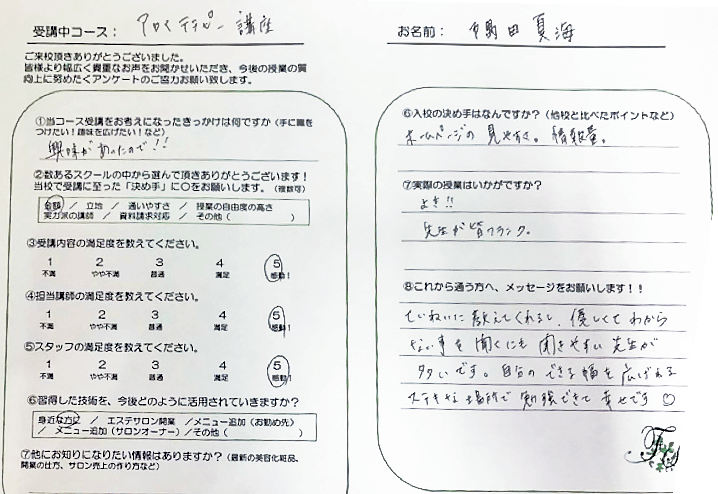 受講中コース： アロマテラピー講座
ご来校頂きありがとうございました。
皆様より幅広く貴重なお声をお聞かせいただき、今後の授業の質
向上に努めたくアンケートのご協力お願い致します。
①当コース受講をお考えになったきっかけは何ですか（手に職を
つけたい！趣味を広げたい！など）
興味があったので！！
②数あるスクールの中から選んで頂きありがとうございます！
当校で受講に至った「決め手」に〇をお願いします。（複数可）
金額 ／ 立地 ／ 通いやすさ ／ 授業の自由度の高さ
実力派の講師 ／ 資料請求対応 ／ その他（ ）
③受講内容の満足度を教えてください。
1 2 3 4 5
不満 やや不満 普通 満足 感動！
④担当講師の満足度を教えてください。
1 2 3 4 5
不満 やや不満 普通 満足 感動！
⑤スタッフの満足度を教えてください。
1 2 3 4 5
不満 やや不満 普通 満足 感動！
⑥習得した技術を、今後どのように活用されていきますか？
身近な方に ／ エステサロン開業 ／メニュー追加（お勤め先）
／ メニュー追加（サロンオーナー）／その他（ ）
⑦他にお知りになりたい情報はありますか？（最新の美容化粧品、
開業の仕方、サロン売上の作り方など）
お名前： 田 夏海
⑥入校の決め手はなんですか？（他校と比べたポイントなど）
ホームページの見やすさ。情報量。
⑦実際の授業はいかがですか？
よき!!
先生が皆フランク。
⑧これから通う方へ、メッセージをお願いします！！
ていねいに教えてくれるし、優しくてわから
ない事を聞くにも聞きやすい先生が
多いです。自分のできる幅を広げれる
ステキな場所で勉強できて幸せです♡